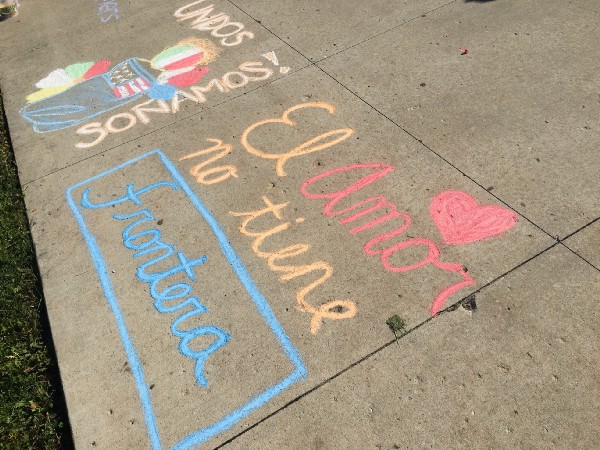 UNIDOS
SOÑAMOS!
El Amor
no tiene
frontera